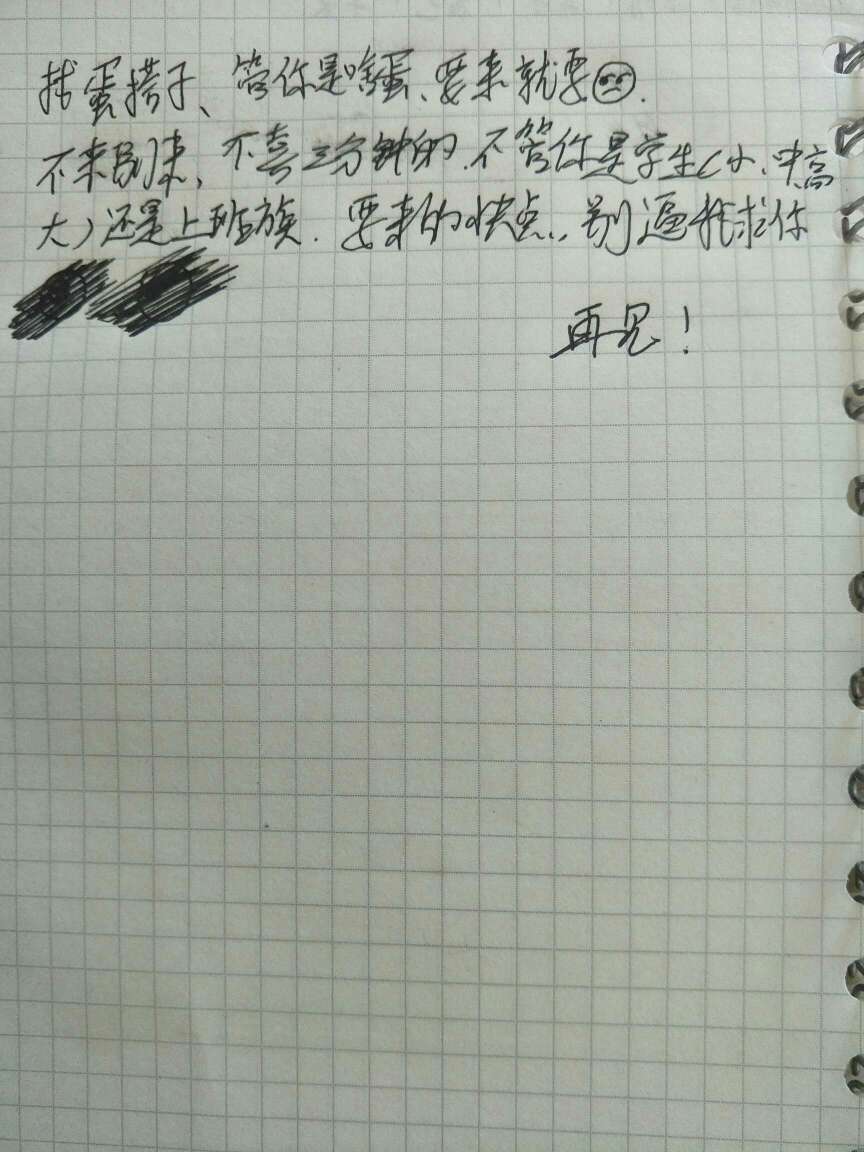 找蛋搭子、管你是啥蛋、要来就要☹.
不来别来、不喜三分钟的.不管你是学生(小、中高
大)还是上班族.要来的快点..别逼我求你
再见!